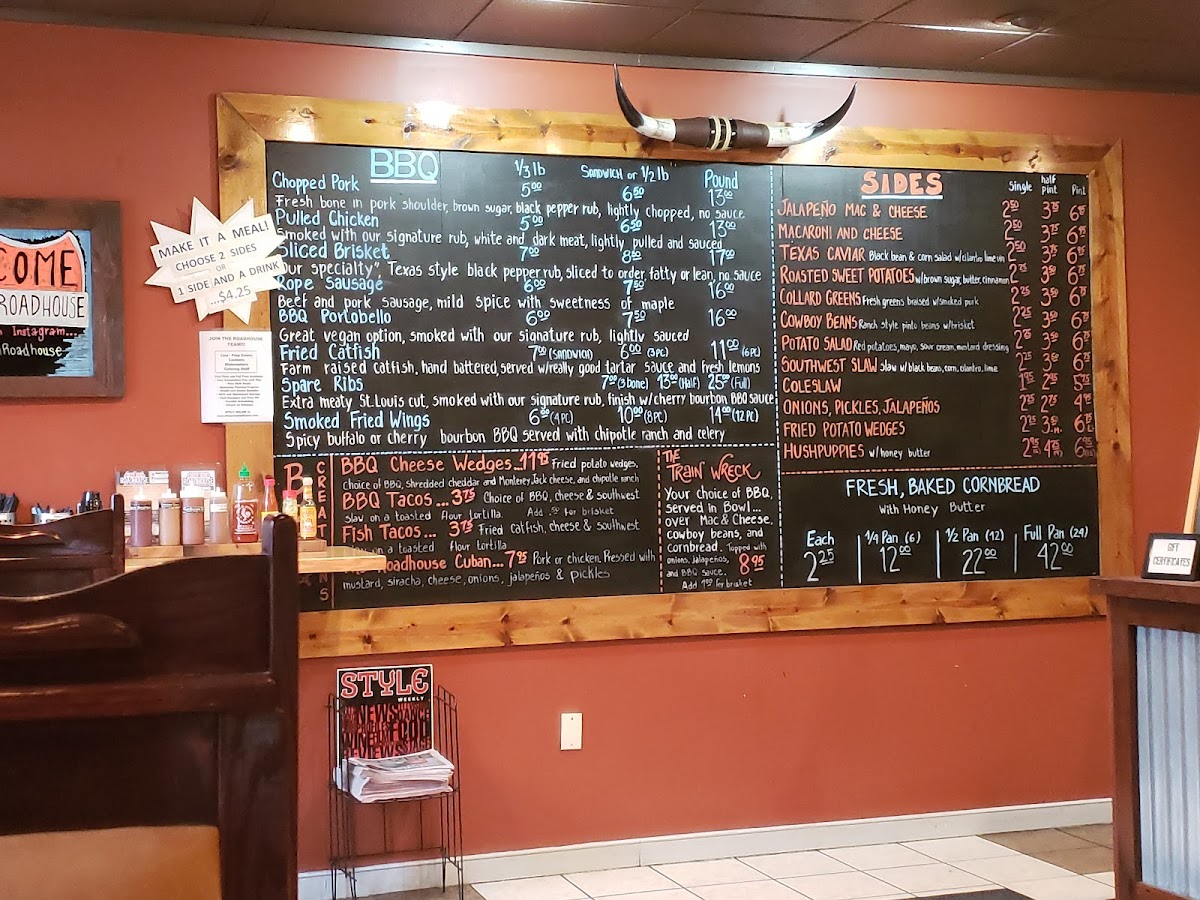 COME
ROADHOUSE
Instagram...
Roadhouse
MAKE IT A MEAL!
CHOOSE 2 SIDES
OR
1 SIDE AND A DRINK
...$4.25
JOIN THE ROADHOUSE
TEAM!!
BBQ 1/3 lb SANDWICH or 1/2 lb Pound
Chopped Pork 5.00 6.50 13.00
Fresh bone in pork shoulder, brown sugar, black pepper rub, lightly chopped, no sauce
Pulled Chicken 5.00 6.50 13.00
Smoked with our signature rub, white and dark meat, lightly pulled and sauced
Sliced Brisket 7.00 8.50 17.00
our specialty", Texas style black pepper rub, sliced to order, fatty or lean, no sauce
Rope Sausage 6.00 7.50 16.00
Beef and pork sausage, mild spice with sweetness of maple
BBQ Portobello 6.00 7.50 16.00
Great vegan option, smoked with our signature rub, lightly sauced
Fried Catfish 7.00 (SANDWICH) 6.00 (3PC) 11.00 (6PC)
Farm raised catfish, hand battered, served w/really good tartar sauce and fresh lemons
Spare Ribs 7.00 (3 bone) 13.00 (Half) 25.00 (Full)
Extra meaty St. Louis cut, smoked with our signature rub, finish w/cherry bourbon BBQ sauce
Smoked Fried Wings 6.50 (4PC) 10.00 (8PC) 14.00 (12 PC)
Spicy buffalo or cherry bourbon BBQ served with chipotle ranch and celery
BBQ Cheese Wedges...11.95 Fried potato wedges,
Choice of BBQ, shredded cheddar and Monterey Jack cheese, and chipotle ranch
BBQ Tacos... 3.75 Choice of BBQ, cheese & southwest
slaw on a toasted flour tortilla. Add .50 for brisket
Fish Tacos... 3.75 Fried catfish, cheese & southwest
on a toasted flour tortilla
Roadhouse Cuban...7.95 Pork or chicken. Pressed with
mustard, siracha, cheese, onions, jalapeños & pickles
THE
TRAIN WRECK
Your choice of BBQ,
served in Bowl...
over Mac & Cheese,
cowboy beans, and
cornbread. Topped with
onions, jalapeños,
and BBQ sauce. 8.95
Add 1.00 for brisket
SIDES Single half pint Pint
JALAPEÑO MAC & CHEESE 2.50 3.75 6.75
MACARONI AND CHEESE 2.50 3.75 6.75
TEXAS CAVIAR Black bean & corn salad w/cilantro lime vin 2.50 3.75 6.75
ROASTED SWEET POTATOES w/brown sugar, butter, cinnamon 2.25 3.50 6.75
COLLARD GREENS Fresh greens braised w/smoked pork 2.25 3.50 6.75
COWBOY BEANS Ranch style pinto beans w/brisket 2.25 3.50 6.75
POTATO SALAD Red potatoes, mayo, sour cream, mustard dressing 2.25 3.50 6.75
SOUTHWEST SLAW slaw w/black beans, corn, cilantro, lime 2.25 3.50 6.75
COLESLAW 1.95 2.95 5.75
ONIONS, PICKLES, JALAPEÑOS
FRIED POTATO WEDGES
HUSHPUPPIES w/honey butter
FRESH, BAKED CORNBREAD
with Honey Butter
Each 1/4 Pan (6) 1/2 Pan (12) Full Pan (24)
2.25 12.00 22.00 42.00
GIFT
CERTIFICATES
STYLE
WEEKLY
NEWS
FOOD